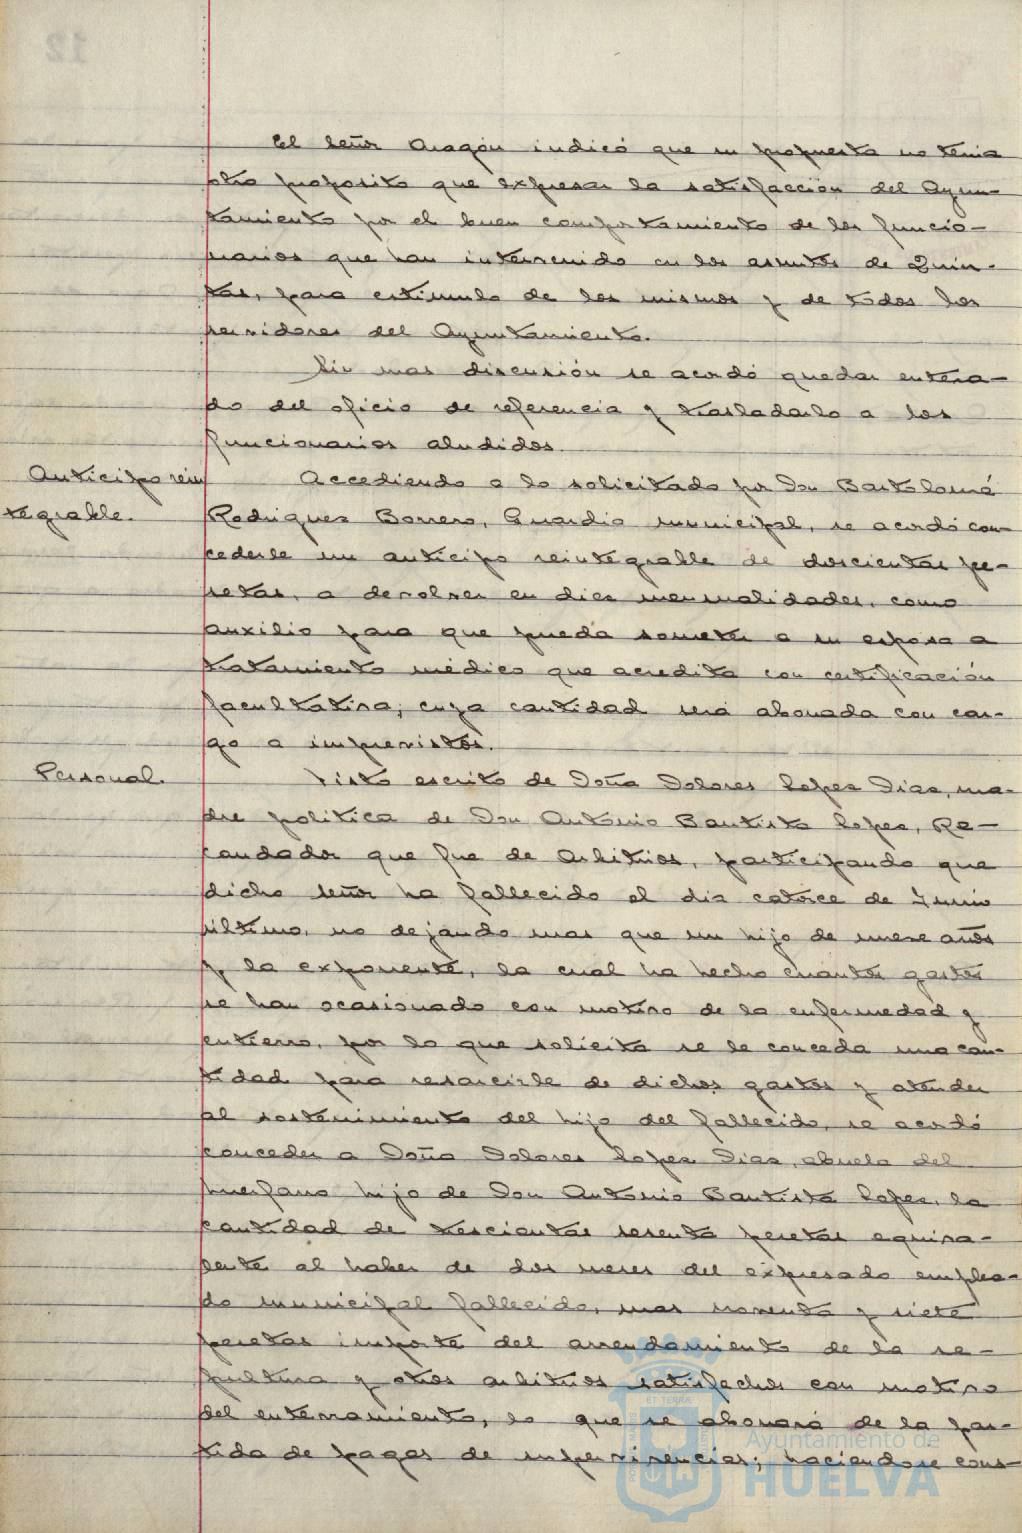 12
El señor Aragón indicó que su propuesta no tenia
otro proposito que expresar la satisfacción del Ayun-
tamiento por el buen comportamiento de los funcio-
narios que han intervenido en los asuntos de Quin-
tas, para estimulo de los mismos y de todos los
servidores del Ayuntamiento.
Sin mas discusión se acordó quedar entera-
do del oficio de referencia y trasladarlo a los
funcionarios aludidos.
Anticipo rein
tegrable.
Accediendo a lo solicitado por Don Bartolomé
Rodriguez Borrero, Guardia municipal, se acordó con-
cederle un anticipo reintegrable de doscientas pe-
setas, a devolver en diez mensualidades, como
auxilio para que pueda someter a su esposa a
tratamiento médico que acredita con certificación
facultativa, cuya cantidad será abonada con car-
go a imprevistos.
Personal.
Visto escrito de Doña Dolores Lopez Diaz, ma-
dre politica de Don Antonio Bautista Lopez, Re-
caudador que fue de Arbitrios, participando que
dicho señor ha fallecido el dia catorce de Junio
último, no dejando mas que un hijo de nueve años
y la exponente, la cual ha hecho cuantos gastos
se han ocasionado con motivo de la enfermedad y
entierro, por lo que solicita se le conceda una can-
tidad para resarcirle de dichos gastos y atender
al sostenimiento del hijo del fallecido, se acordó
conceder a Doña Dolores Lopez Diaz, abuela del
huerfano hijo de Don Antonio Bautista Lopez, la
cantidad de trescientas sesenta pesetas equiva-
lente al haber de dos meses del expresado emplea-
do municipal fallecido, mas noventa y siete
pesetas importe del arrendamiento de la se-
pultura y otros arbitrios satisfechos con motivo
del enterramiento, lo que se abonará de la par-
tida de pagas de supervivencias; haciendose cons-
Ayuntamiento de
HUELVA